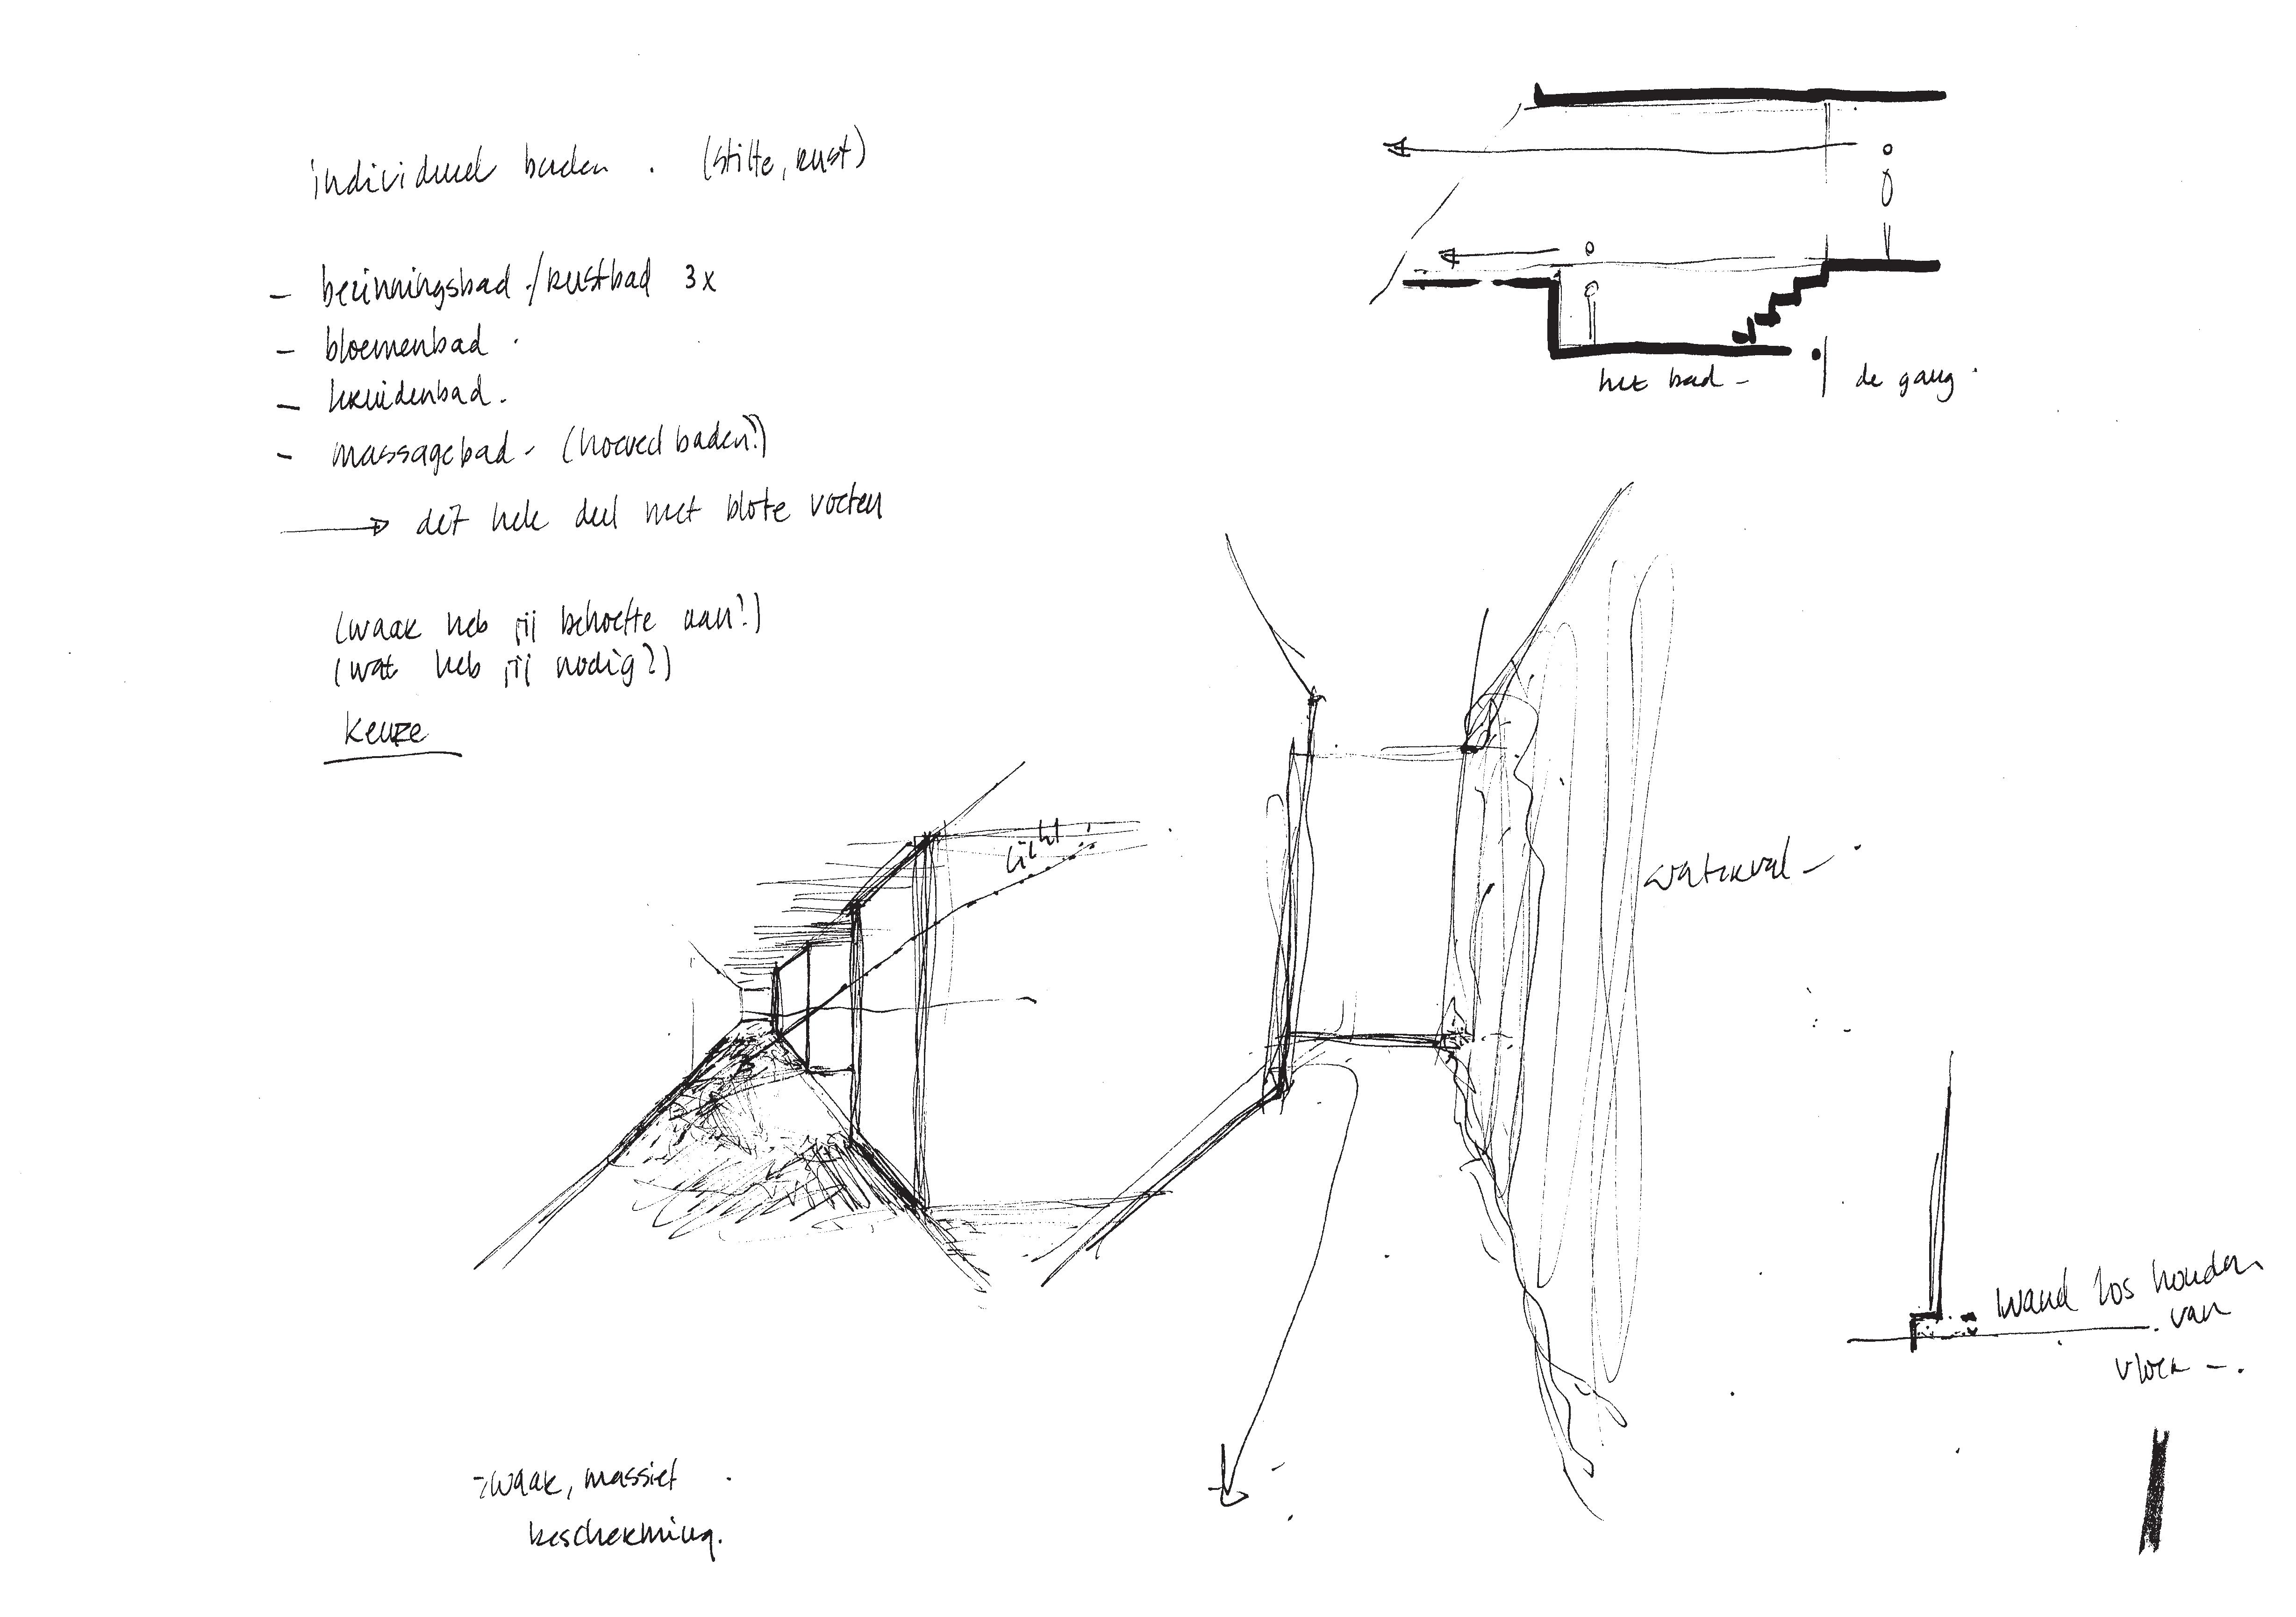 individueel baden. (stilte, rust)
- bezinningsbad./rustbad 3x
- bloemenbad.
- kruidenbad.
- massagebad - (hoeveel baden?)
→ dit hele deel met blote voeten
(waar heb jij behoefte aan?)
(wat heb jij nodig?)
keuze
het bad - | de gang.
licht
waterval -
wand los houden
van
vloer -.
zwaar, massief.
bescherming.